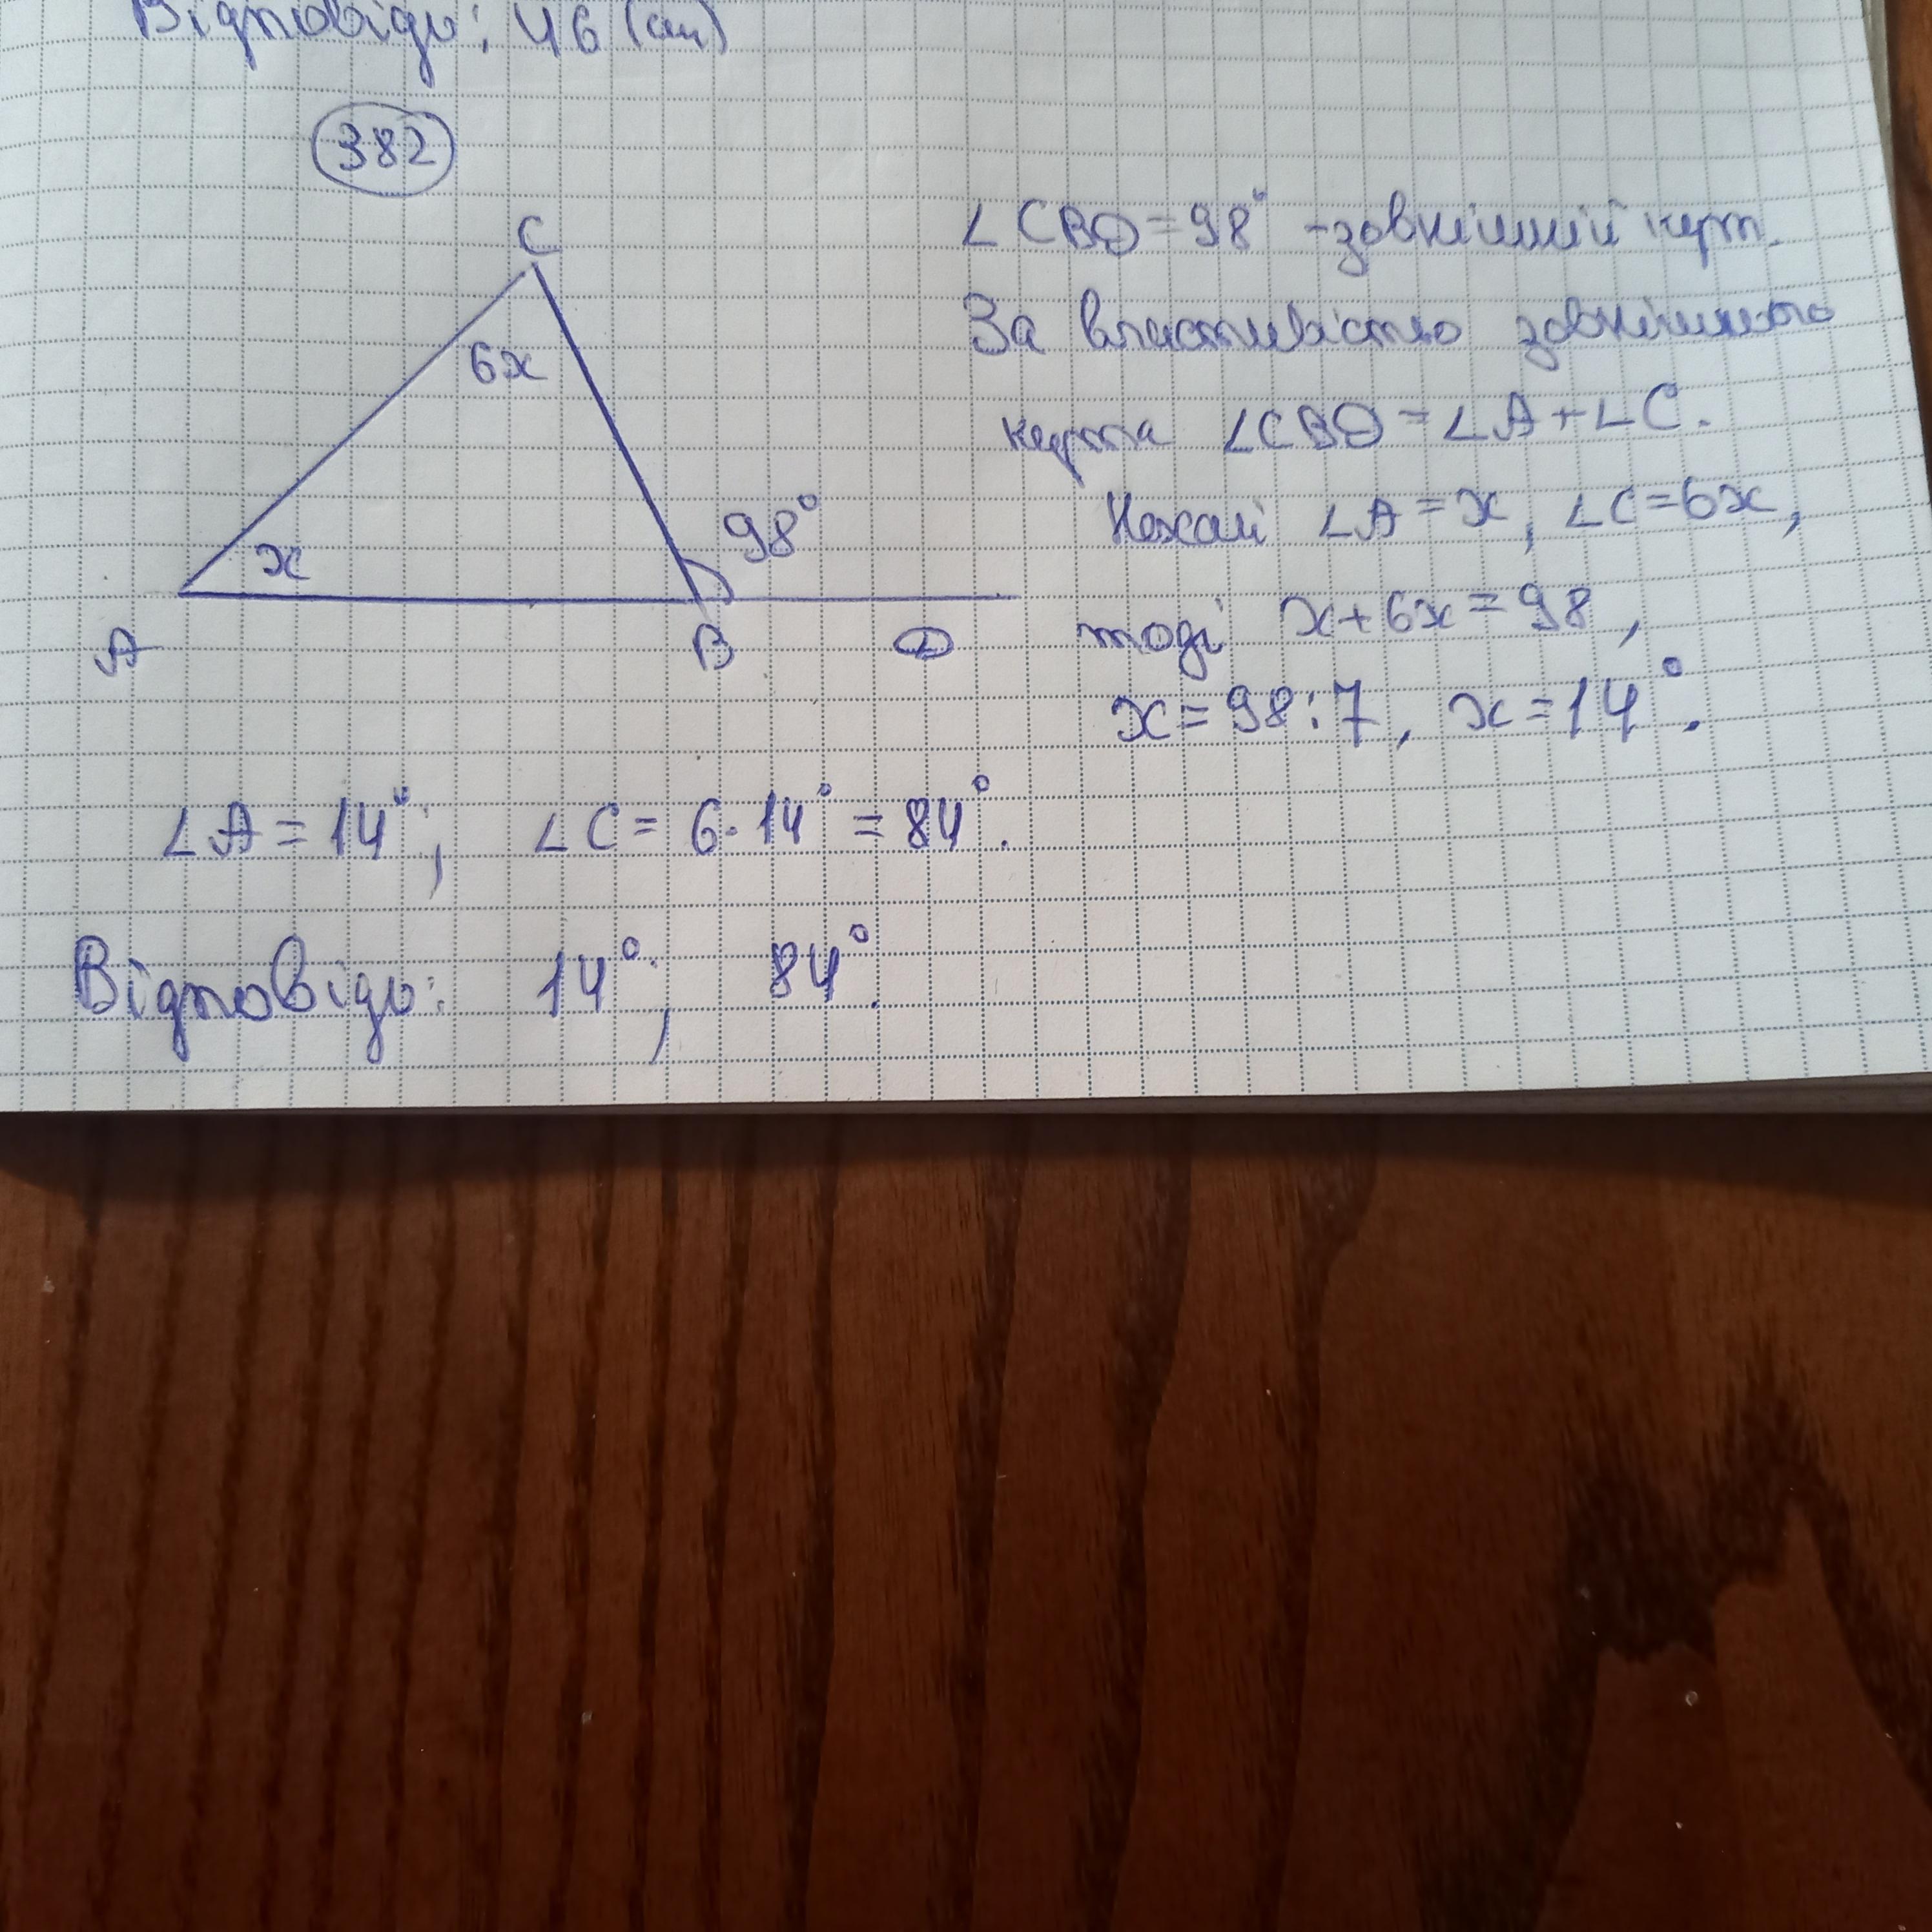 Відповідь: 46 (см)
382
C
6x
98°
x
A
B
D
∠CBD = 98° - зовнішній кут.
За властивістю зовнішнього
кута ∠CBD = ∠A + ∠C.
Нехай ∠A = x, ∠C = 6x,
тоді x + 6x = 98,
x = 98 : 7, x = 14°.
∠A = 14°; ∠C = 6 · 14° = 84°.
Відповідь: 14°; 84°.